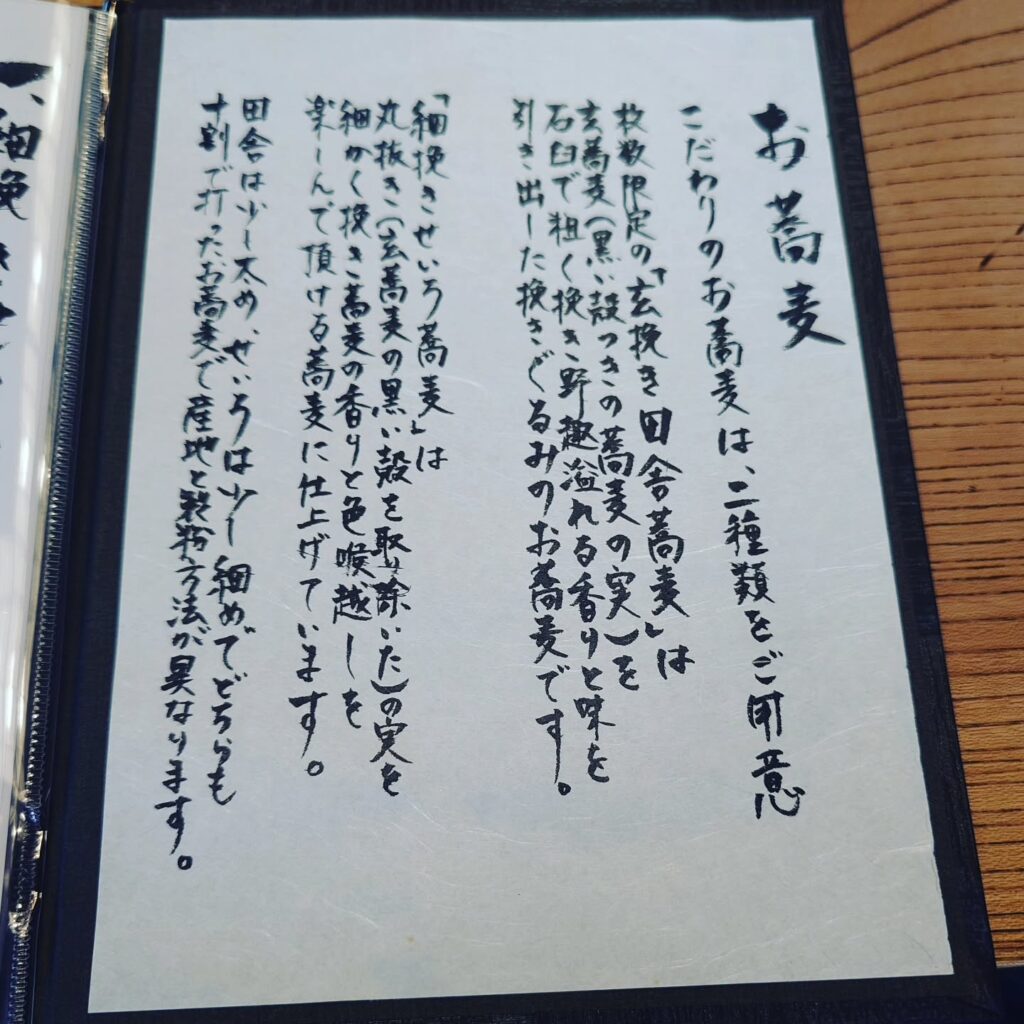 お蕎麦
こだわりのお蕎麦は、二種類をご用意
枚数限定の「玄挽き田舎蕎麦」は
玄蕎麦(黒い殻つきの蕎麦の実)を
石臼で粗く挽き野趣溢れる香りと味を
引き出した挽きぐるみのお蕎麦です。
「細挽きせいろ蕎麦」は
丸抜き(玄蕎麦の黒い殻を取り除いた)の実を
細かく挽き蕎麦の香りと色喉越しを
楽しんで頂ける蕎麦に仕上げています。
田舎は少し太め、せいろは少し細めでどちらも
十割で打ったお蕎麦で産地と製粉方法が異なります。
一、細挽